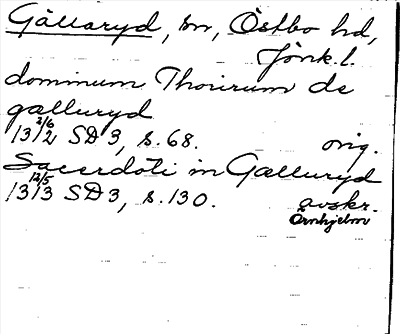 Gällaryd, sn, Östbo hd,
Jönk.l.
dominum Thorirum de
gælluryd
13 2/6 12 SD 3, s. 68. orig.
Sacerdoti in Gælluryd
13 12/5 13 SD 3, s. 130. avskr.
Örnhjelm